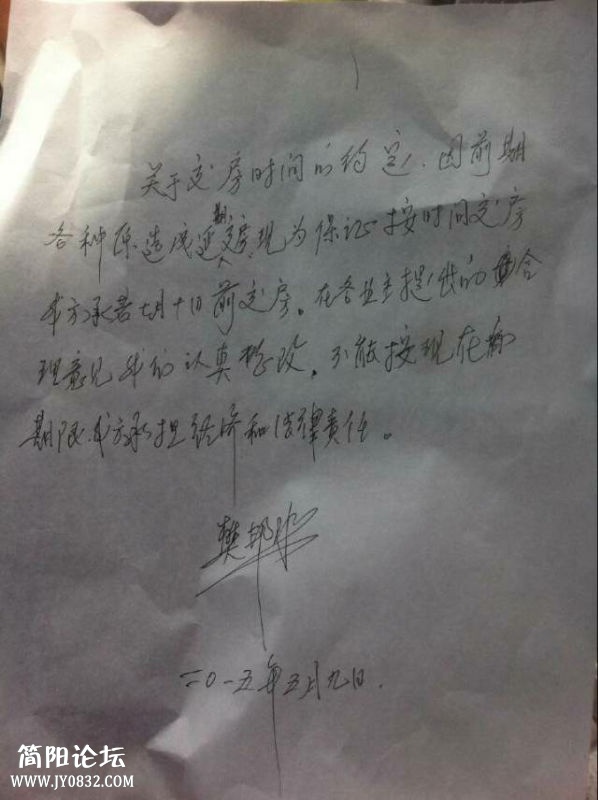 关于交房时间的约定、因前期
各种原造成延期交房、现为保证按时间交房
我方承若七月十日前交房。在各业主提出的合
理意见我们认真整改,不能按现在
期限、我方承担经济和法律责任。
樊邦
二0一五年五月九日.
简阳论坛
WWW.JY0832.COM